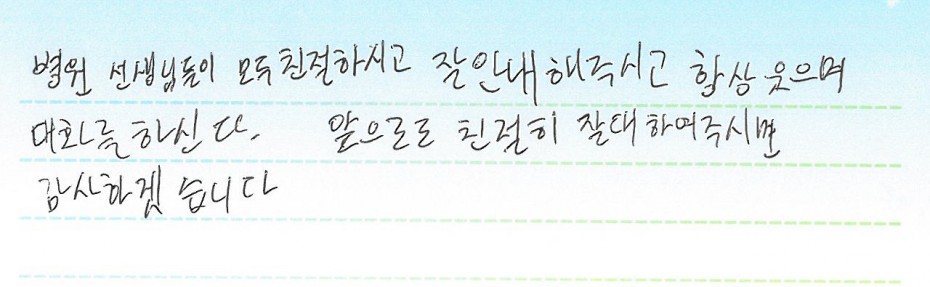 병원 선생님들이 모두 친절하시고 잘 안내 해주시고 항상 웃으며
대화를 하신다. 앞으로도 친절히 잘 대하여주시면
감사하겠습니다